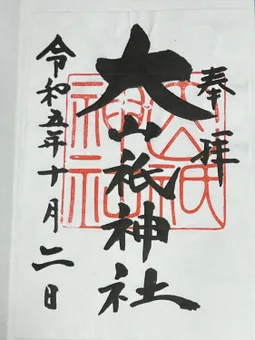 奉拝
大山祇神社
令和五年十月二日